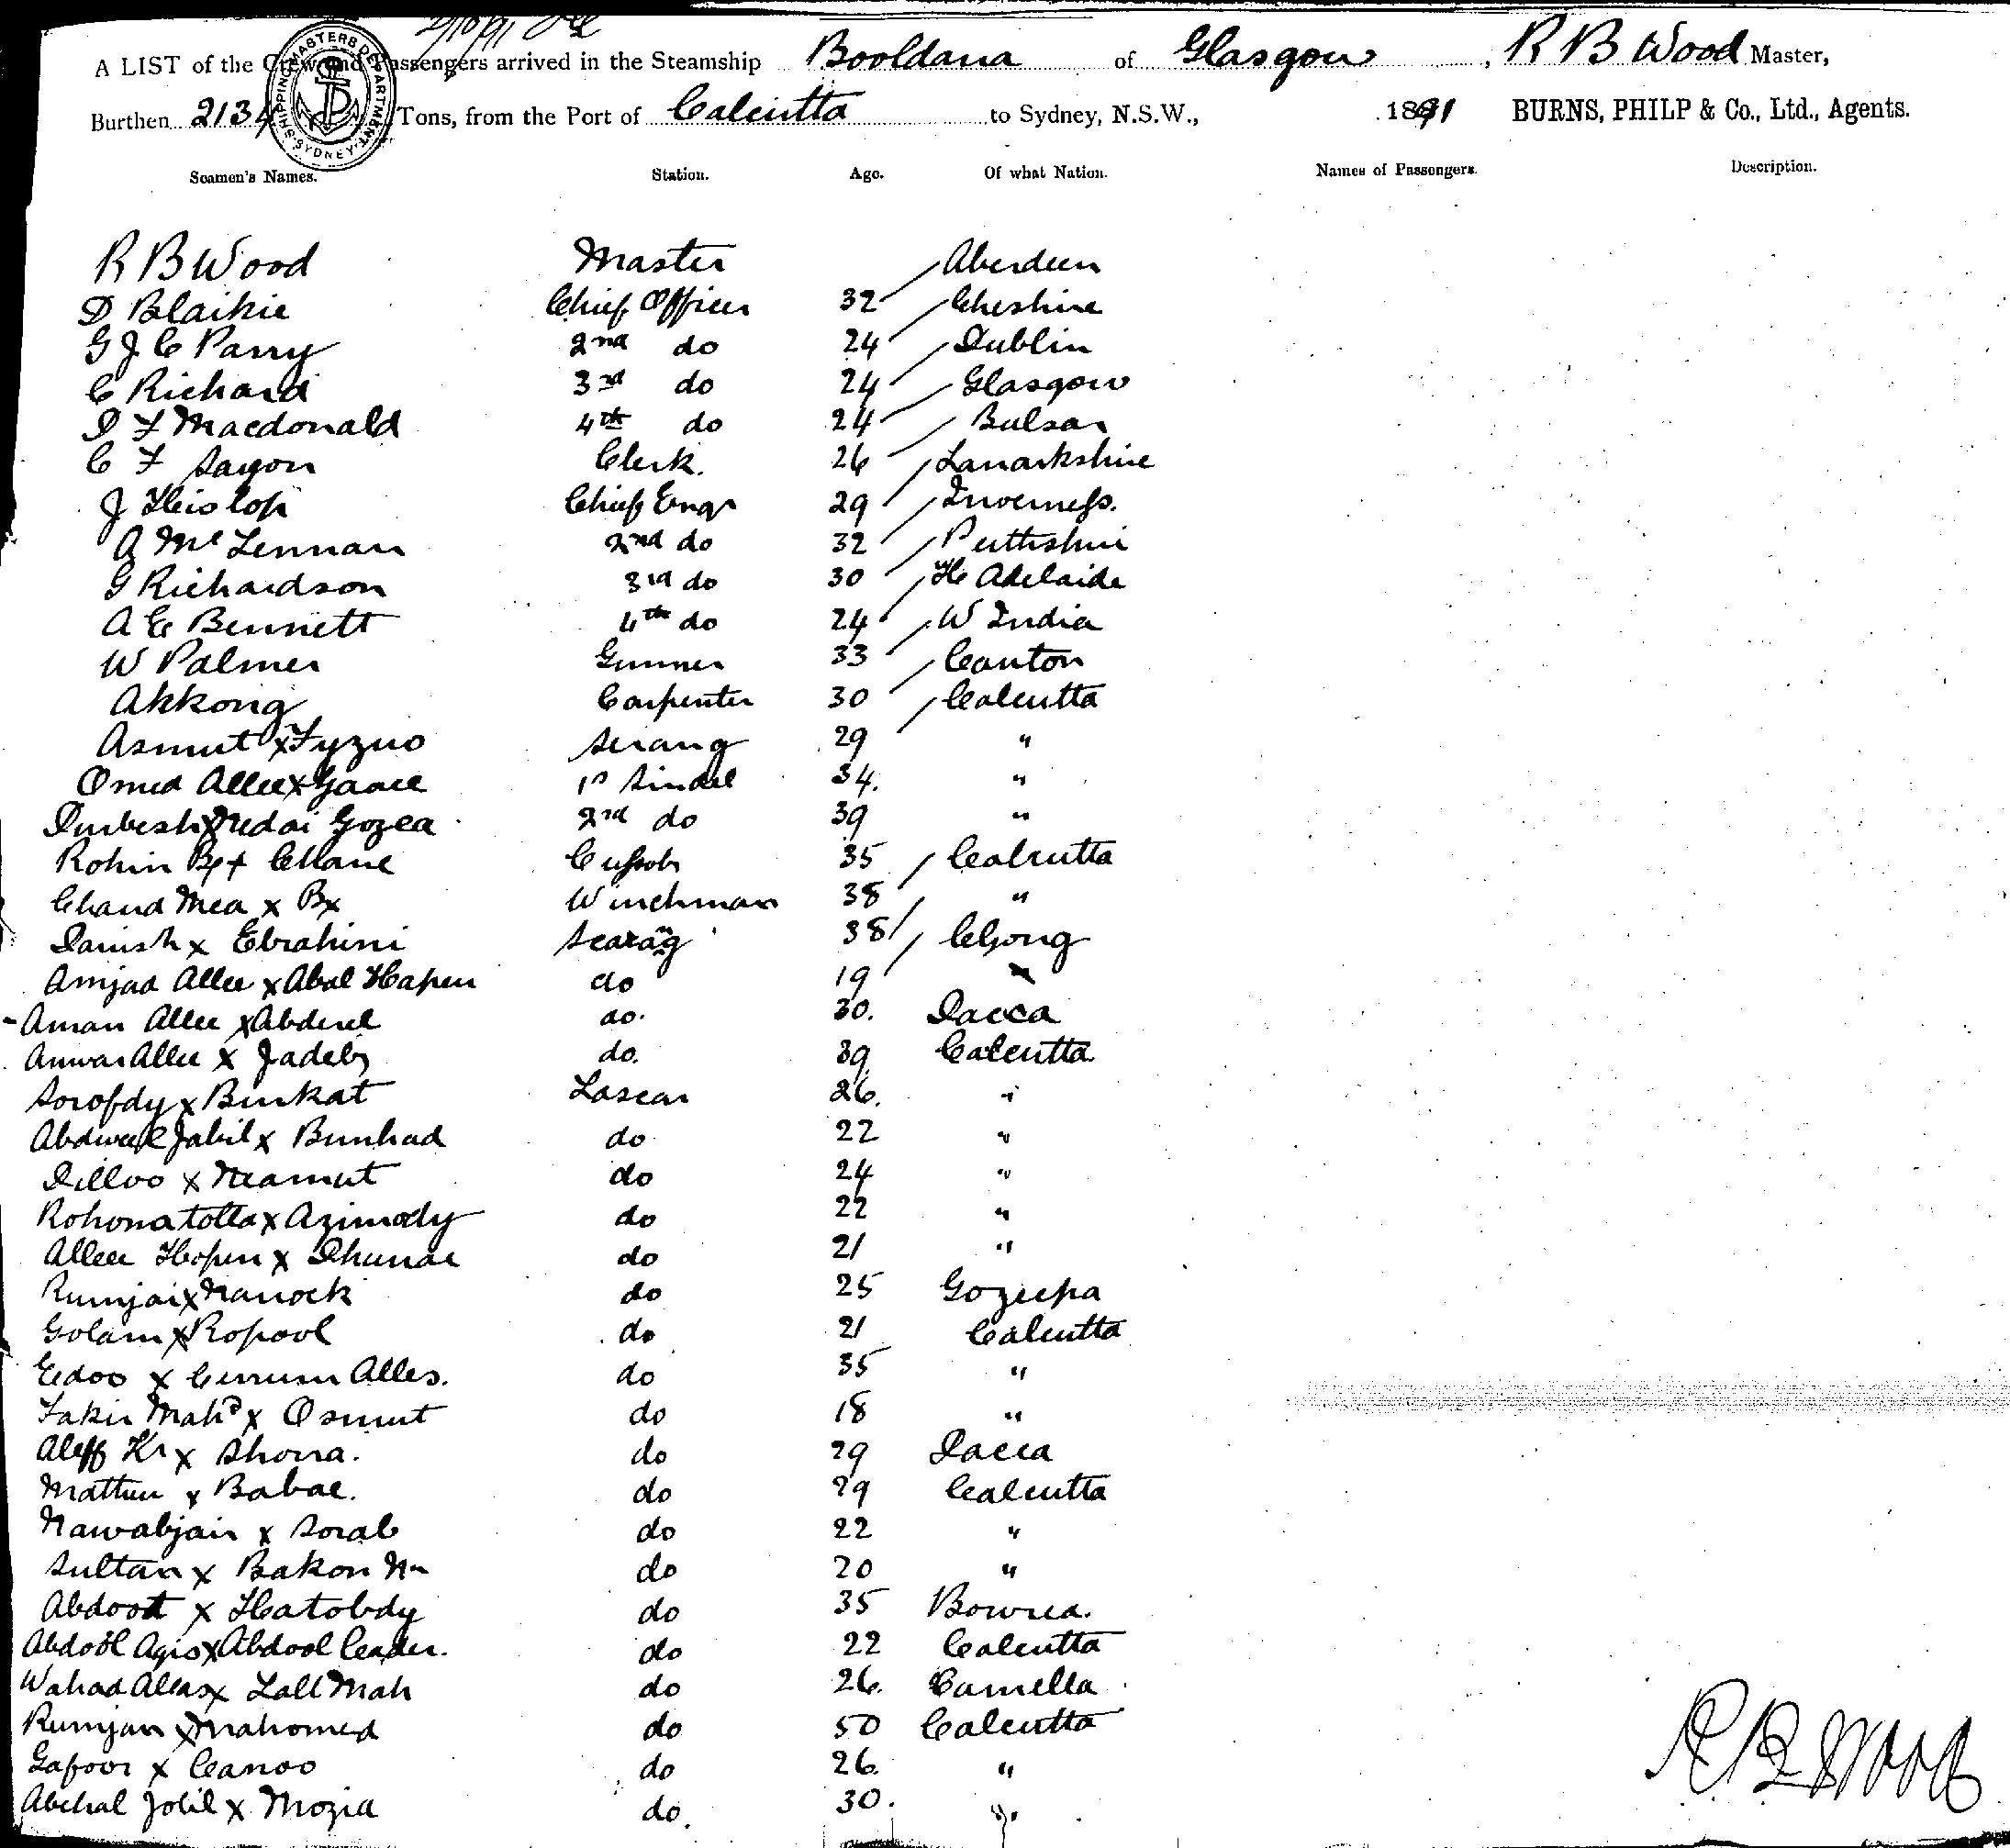 2/10/91
A LIST of the Crew and Passengers arrived in the Steamship Booldana of Glasgow, R B Wood Master,
Burthen 2134 Tons, from the Port of Calcutta to Sydney, N.S.W., 1891 BURNS, PHILP & Co., Ltd., Agents.
SHIPPING MASTERS DEPARTMENT SYDNEY
Seamen's Names. Station. Age. Of what Nation. Names of Passengers. Description.
R B Wood Master Aberdeen
D Blaikie Chief Officer 32 Cheshire
G J C Parry 2nd do 24 Dublin
C Richard 3rd do 24 Glasgow
D F Macdonald 4th do 24 Bulsar
C F Sayon Clerk. 26 Lanarkshire
J Heislop Chief Engr 29 Inverness.
A McLennan 2nd do 32 Perthshire
G Richardson 3rd do 30 Adelaide
A E Bennett 4th do 24 W India
W Palmer Gunner 33 Canton
Akkong Carpenter 30 Calcutta
Asmut x Fyzuo Serang 29 "
Omed Allee x Tindal 34. "
2nd do 39 "
Rohin Bx + 35 Calcutta
Chand Mea x Bx Winchman 38 "
Danish x Ebrahim 38
Amjad Allee x Abdl Hapen do 19
Aman Allee x do. 30. Dacca
Anwar Allee x do. 39 Calcutta
Sorofdy x Burkat Lascar 26. "
x Bunhad do 22 "
Dilloo x Neamut do 24 "
Rohonatolla x Azimody do 22 "
Allee Hopen x do 21 "
Rumjai x Manock do 25
Golam x Ropool do 21 Calcutta
Eedoo x do 35 "
Fakir Mahd x Osmut do 18 "
Aleff Kr x Shona. do 29 Dacca
x Babae. do 29 Calcutta
Nawabjan x Sorab do 22 "
Sultan x Bakon Mn do 20 "
x Hatobdy do 35
Abdool Agis x Abdool Ceader. do 22 Calcutta
x Lall Mah do 26. Camella
Rumjan x Mahomed do 50 Calcutta
Gafoor x Canoo do 26. "
x Mozia do. 30. "
R B Wood